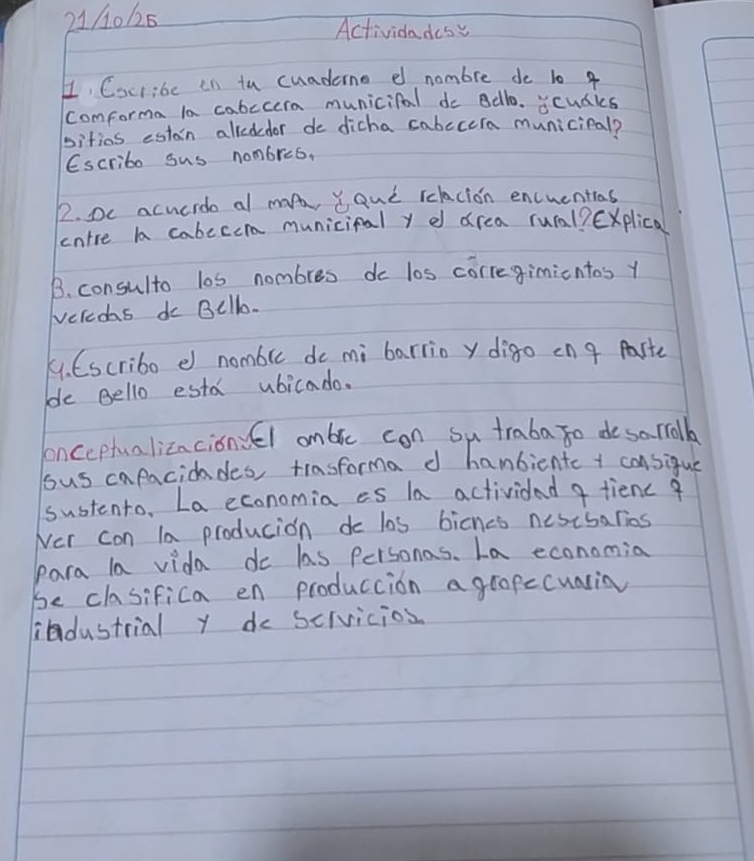 21/10/25
Actividades:
1. Escribe en tu cuaderno el nombre de lo q
comforma la cabecera municipal de Bello. ¿cuáles
sitios están alrededor de dicha cabecera municipal?
Escribo sus nombres.
2. De acuerdo al mapa, ¿qué relación encuentras
entre la cabecera municipal y el área rural? Explica
3. consulto los nombres de los corregimientos y
veredas de Bello.
4. Escribo el nombre de mi barrio y digo en q parte
de Bello está ubicado.
onceptualización: El ombre con su trabajo desarrolla
sus capacidades, trasforma el hambiente y consigue
sustento. La economia es la actividad q tiene q
ver con la produción de los bienes nesesarios
para la vida de las personas. La economia
se clasifica en producción agropecuaria
industrial y de servicios